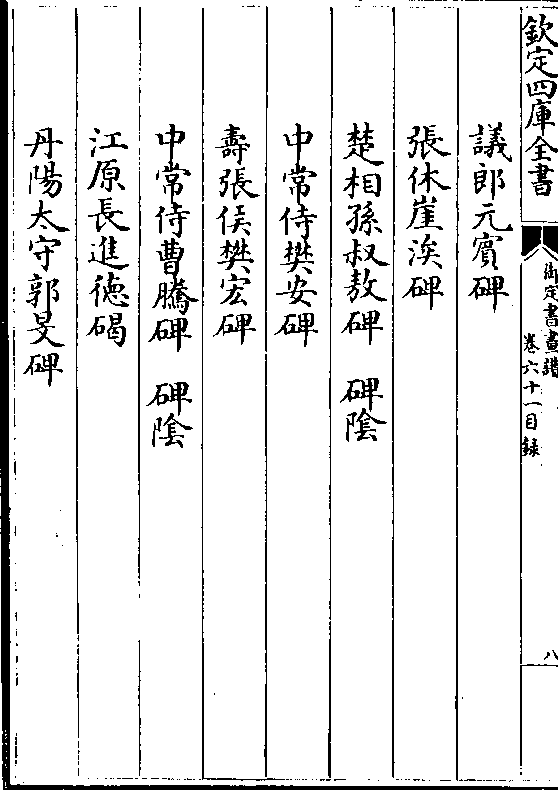 欽定四庫全書
御定書畫譜
卷六十一目録
八
議郎元賓碑
張休崖涘碑
楚相孫叔敖碑 碑隂
中常侍樊安碑
壽張侯樊宏碑
中常侍曹騰碑 碑隂
江原長進德碣
丹陽太守郭旻碑